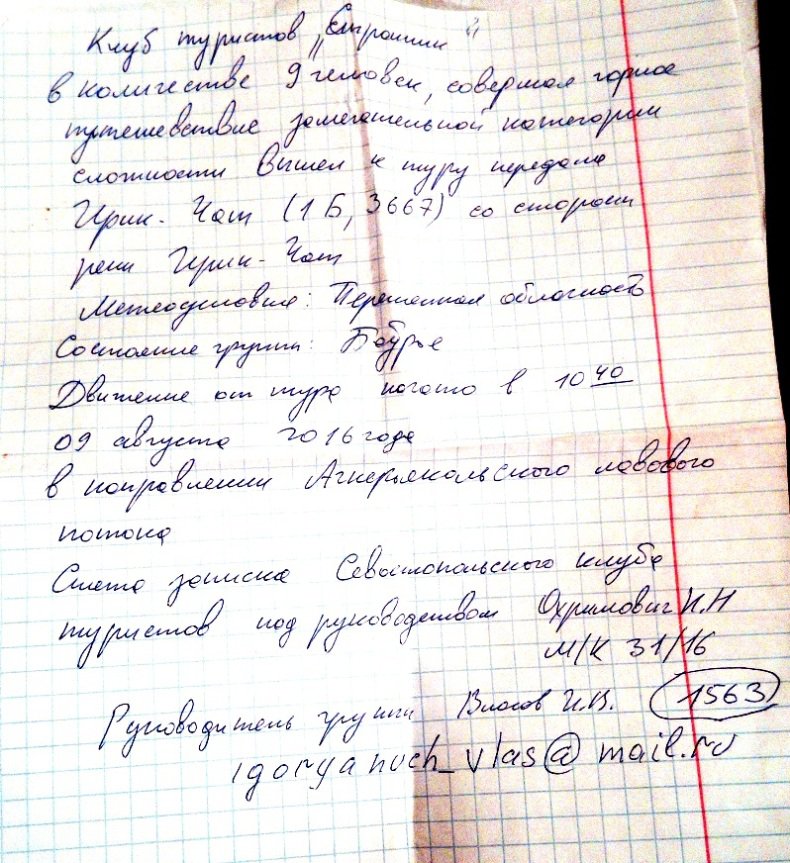 Клуб туристов „Странник"
в количестве 9 человек, совершая горное
путешевствие замечательной категории
сложности вышел к туру перевала
Ирик-Чат (1Б, 3667) со стороны
реки Ирик-Чат
Метеоусловия: Переменная облачность
Состояние группы: Бодрое
Движение от тура начато в 10 40
09 августа 2016 года
в направлении лавового
потока
Снята записка Севастопольского клуба
туристов под руководством Охримович И.Н
М/К 31/16
Руководитель группы Власов И.В. 1563
igoryanuch_vlas@mail.ru